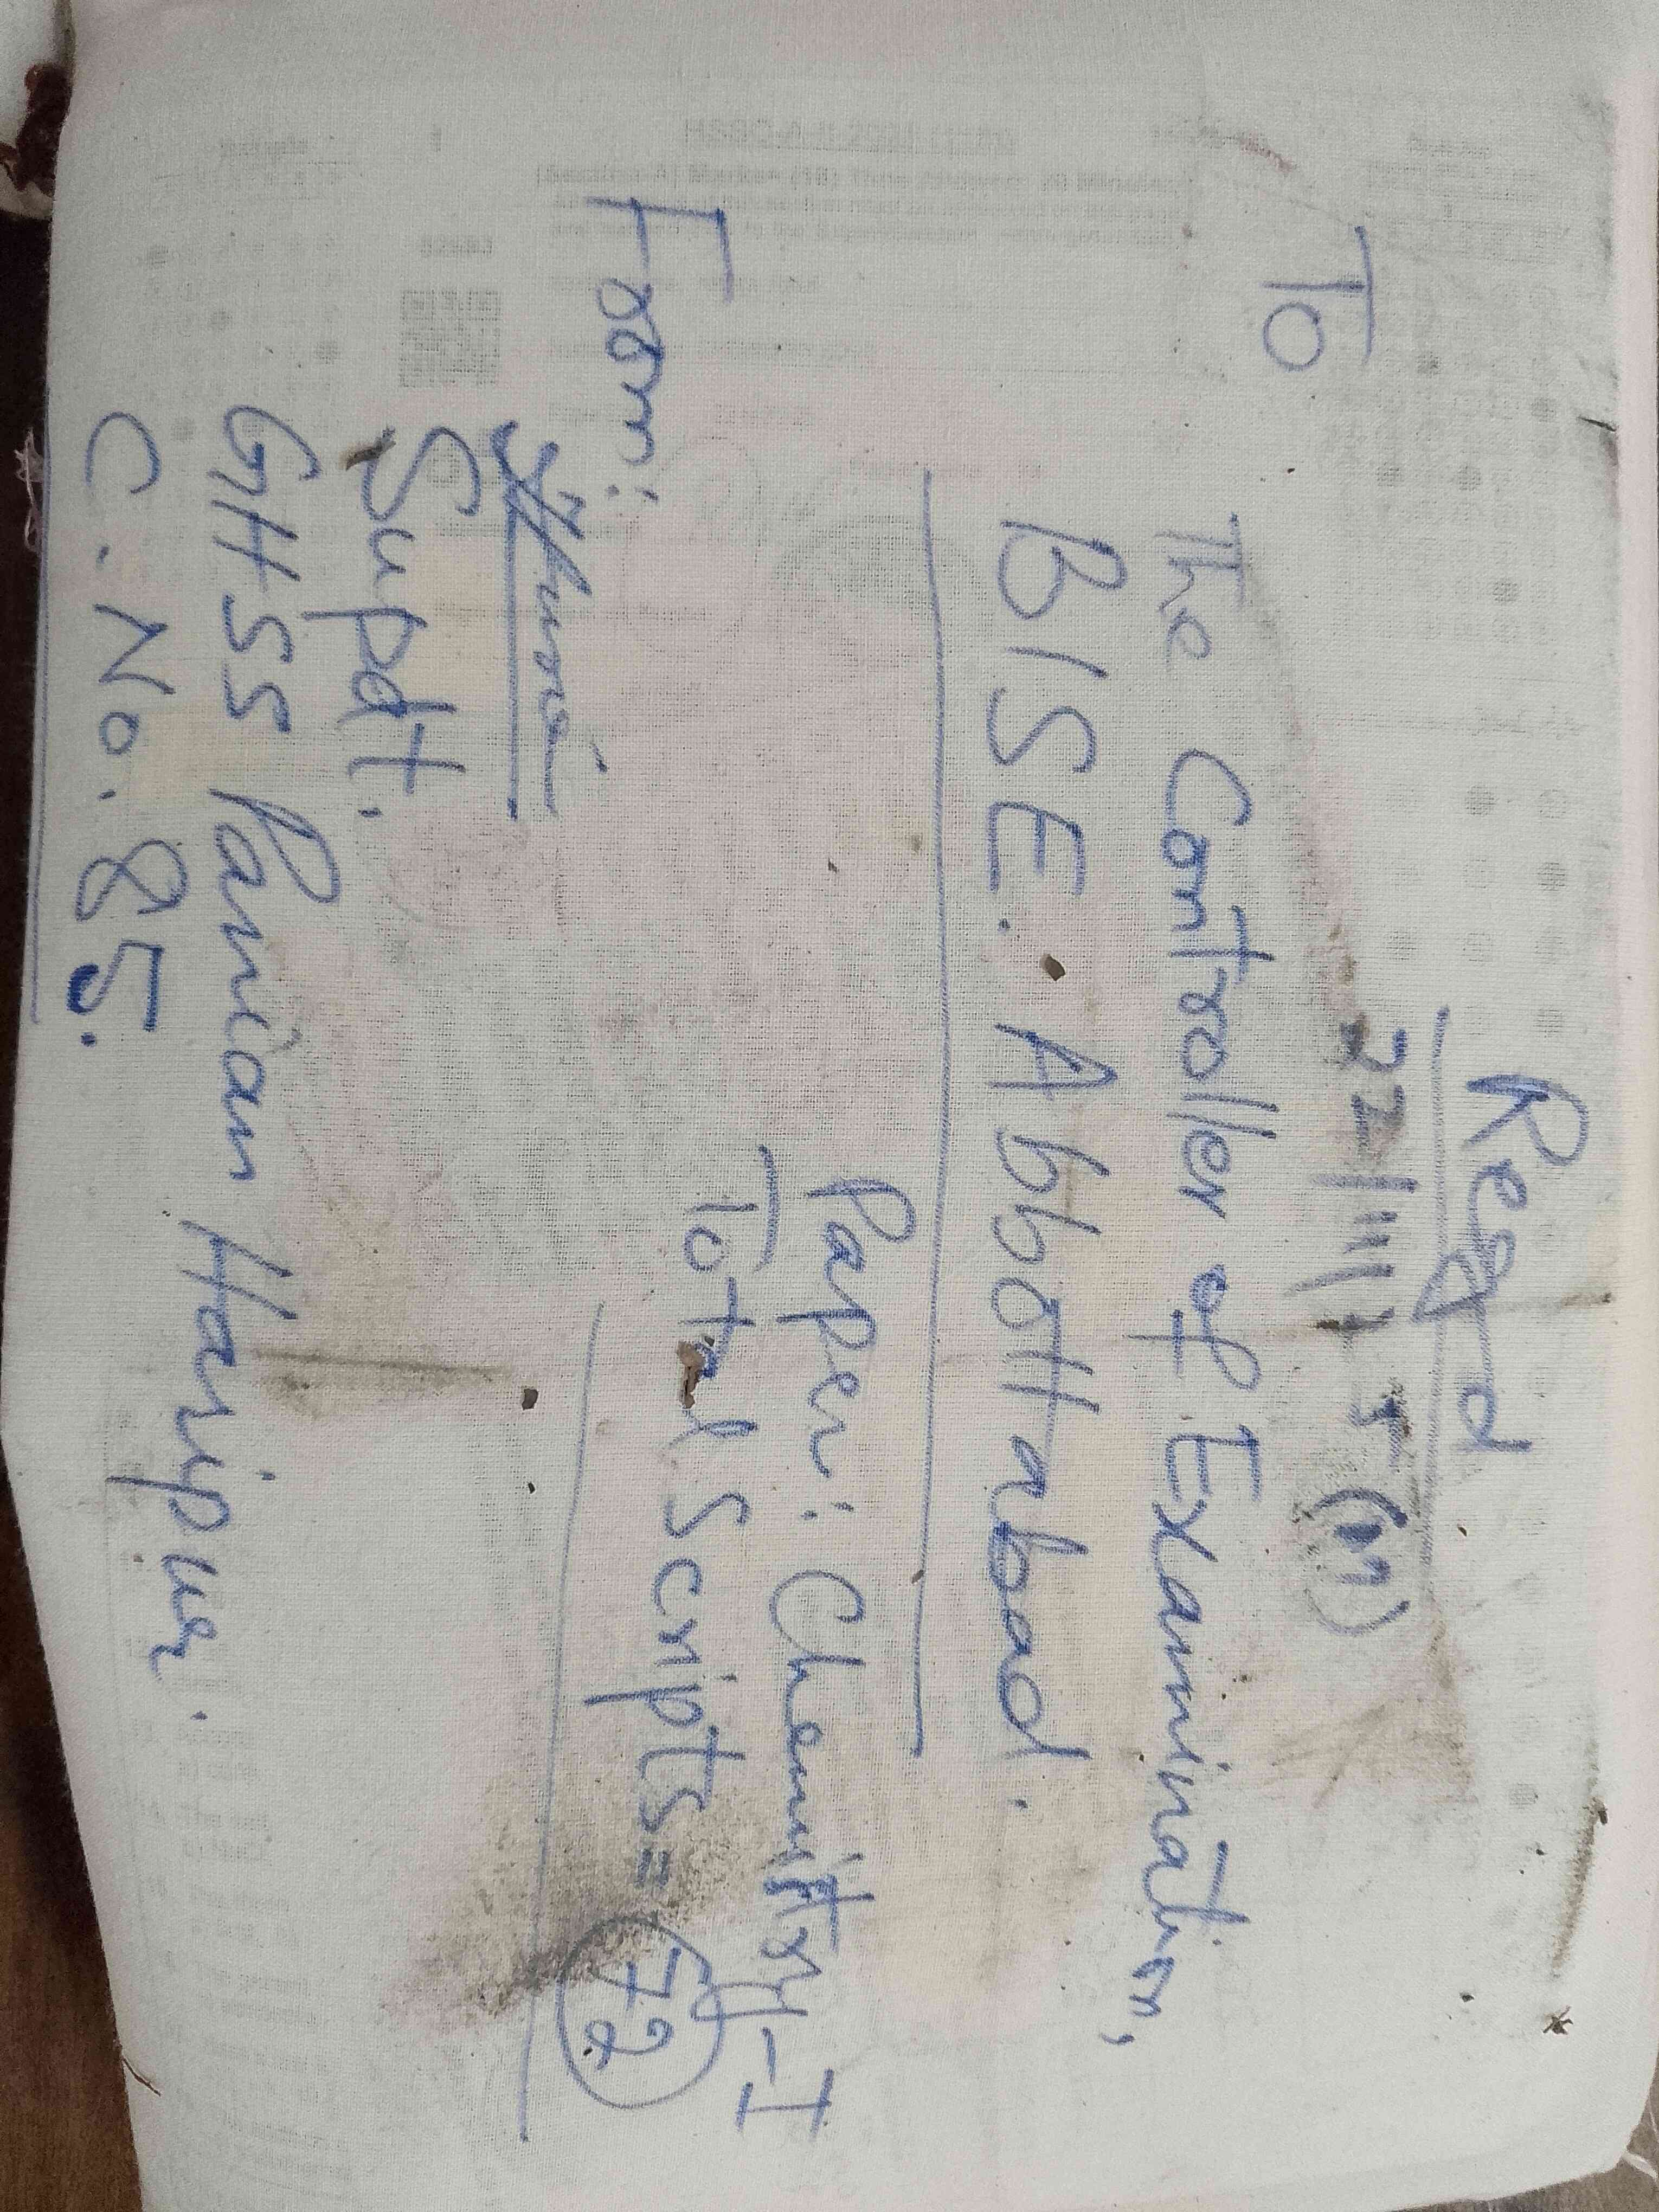 Regd
To
The Controller of Examination,
BISE. Abbottabad.
Paper: Chemistry-I
Total Scripts= 72
From:
Supdt.
GHSS Panian Haripur.
C. No. 85.